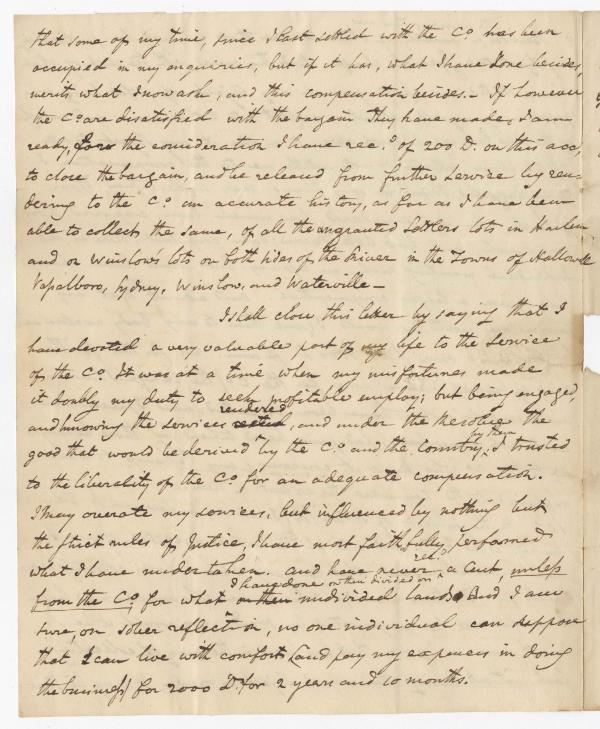 that some of my time, since I last settled with the Co. has been
occupied in my enquiries, but if it has, what I have done besides,
merits what I now ask, and this compensation besides. - If however
the Co. are disatisfied with the bargain they have made, I am
ready, for the consideration I have recd. of 200 D. on this acct,
to close the bargain, and be released from further service by ren-
dering to the Co. an accurate history, as far as I have been
able to collect the same, of all the ungranted Settlers lots in Harlem
and on Winslow's lots on both sides of the River in the Towns of Hallowell
Vassalboro, Sydney, Winslow, and Waterville -
I shall close this letter by saying that I
have devoted a very valuable part of my life to the service
of the Co. It was at a time when my misfortunes made
it doubly my duty to seek profitable employ; but being engaged,
and knowing the services rendered, and under the the
good that would be derived by the Co. and the Country, by them I trusted
to the liberality of the Co. for an adequate compensation.
I may overate my services, but influenced by nothing but
the strict rules of Justice, I have most faithfully performed
what I have undertaken. and have never recd. a Cent, unless
from the Co. for what I have done on their divided or undivided lands. And I am
sure, on sober reflection, no one individual can suppose
that I can live with comfort (and pay my expences in doing
the business) for 2000 Ds. for 2 years and 10 months.